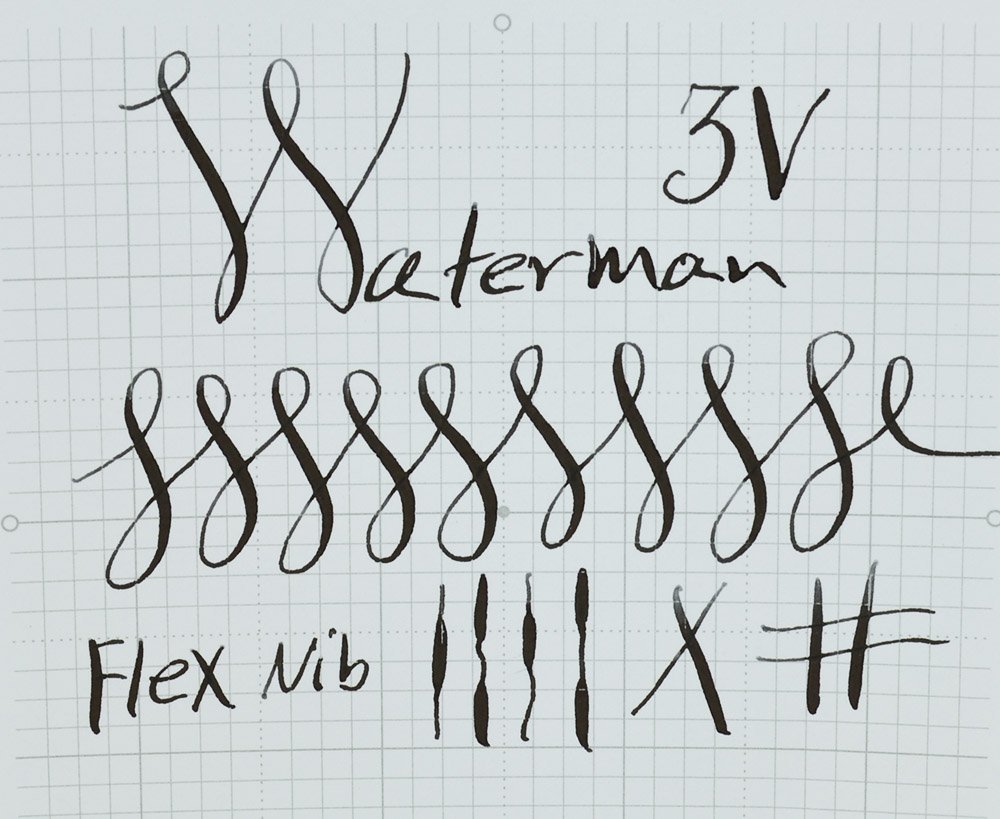 Waterman 3V
Flex Nib X #